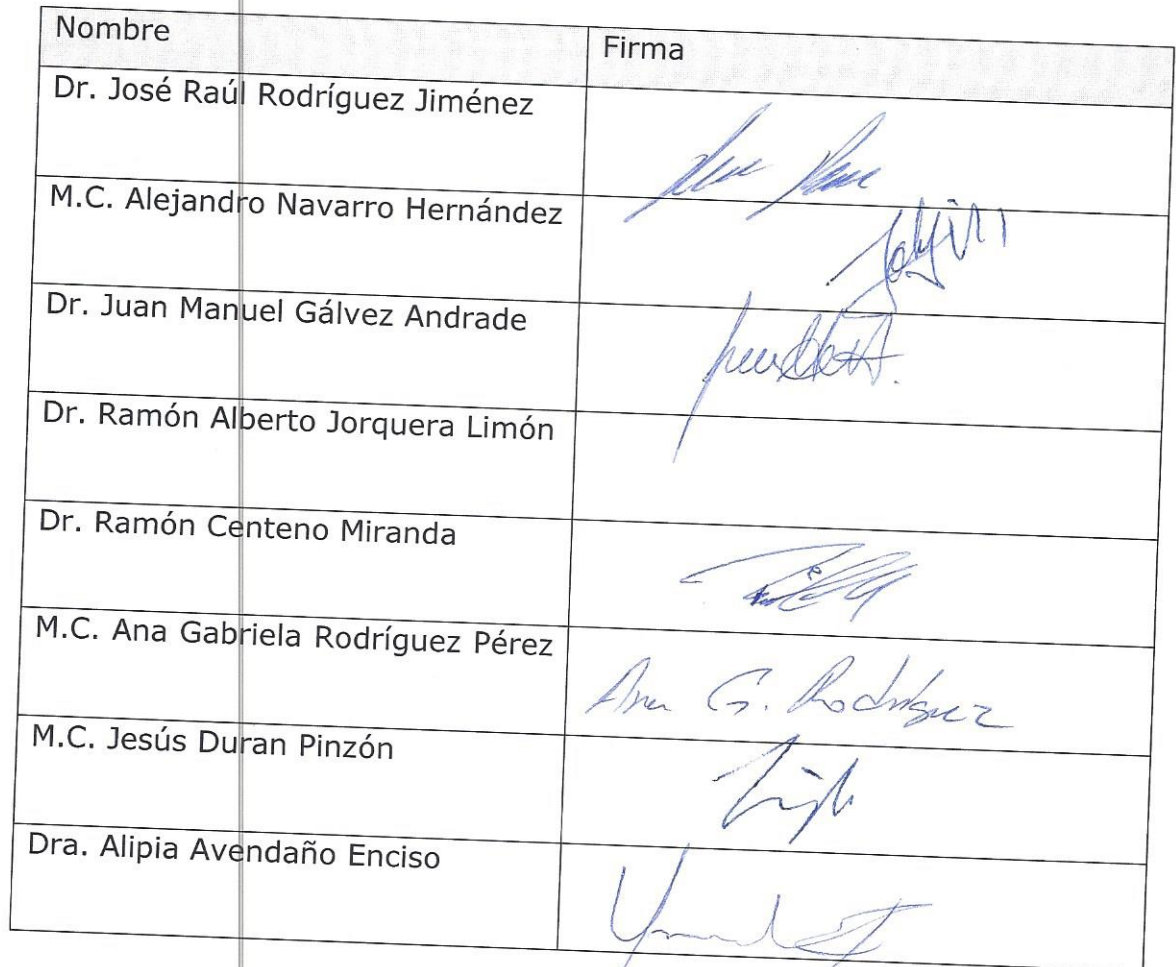 Nombre Firma
Dr. José Raúl Rodríguez Jiménez
M.C. Alejandro Navarro Hernández
Dr. Juan Manuel Gálvez Andrade
Dr. Ramón Alberto Jorquera Limón
Dr. Ramón Centeno Miranda
M.C. Ana Gabriela Rodríguez Pérez Ana G. Rodríguez
M.C. Jesús Duran Pinzón
Dra. Alipia Avendaño Enciso